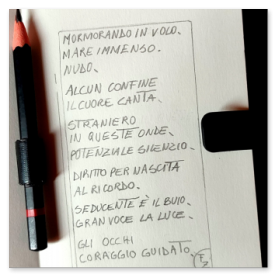 MORMORANDO IN VOLO.
MARE IMMENSO.
NUDO.
ALCUN CONFINE
IL CUORE CANTA.
STRANIERO
IN QUESTE ONDE.
POTENZIALE SILENZIO.
DIRITTO PER NASCITA
AL RICORDO.
SEDUCENTE È IL BUIO.
GRAN VOCE LA LUCE.
GLI OCCHI
CORAGGIO GUIDATO.